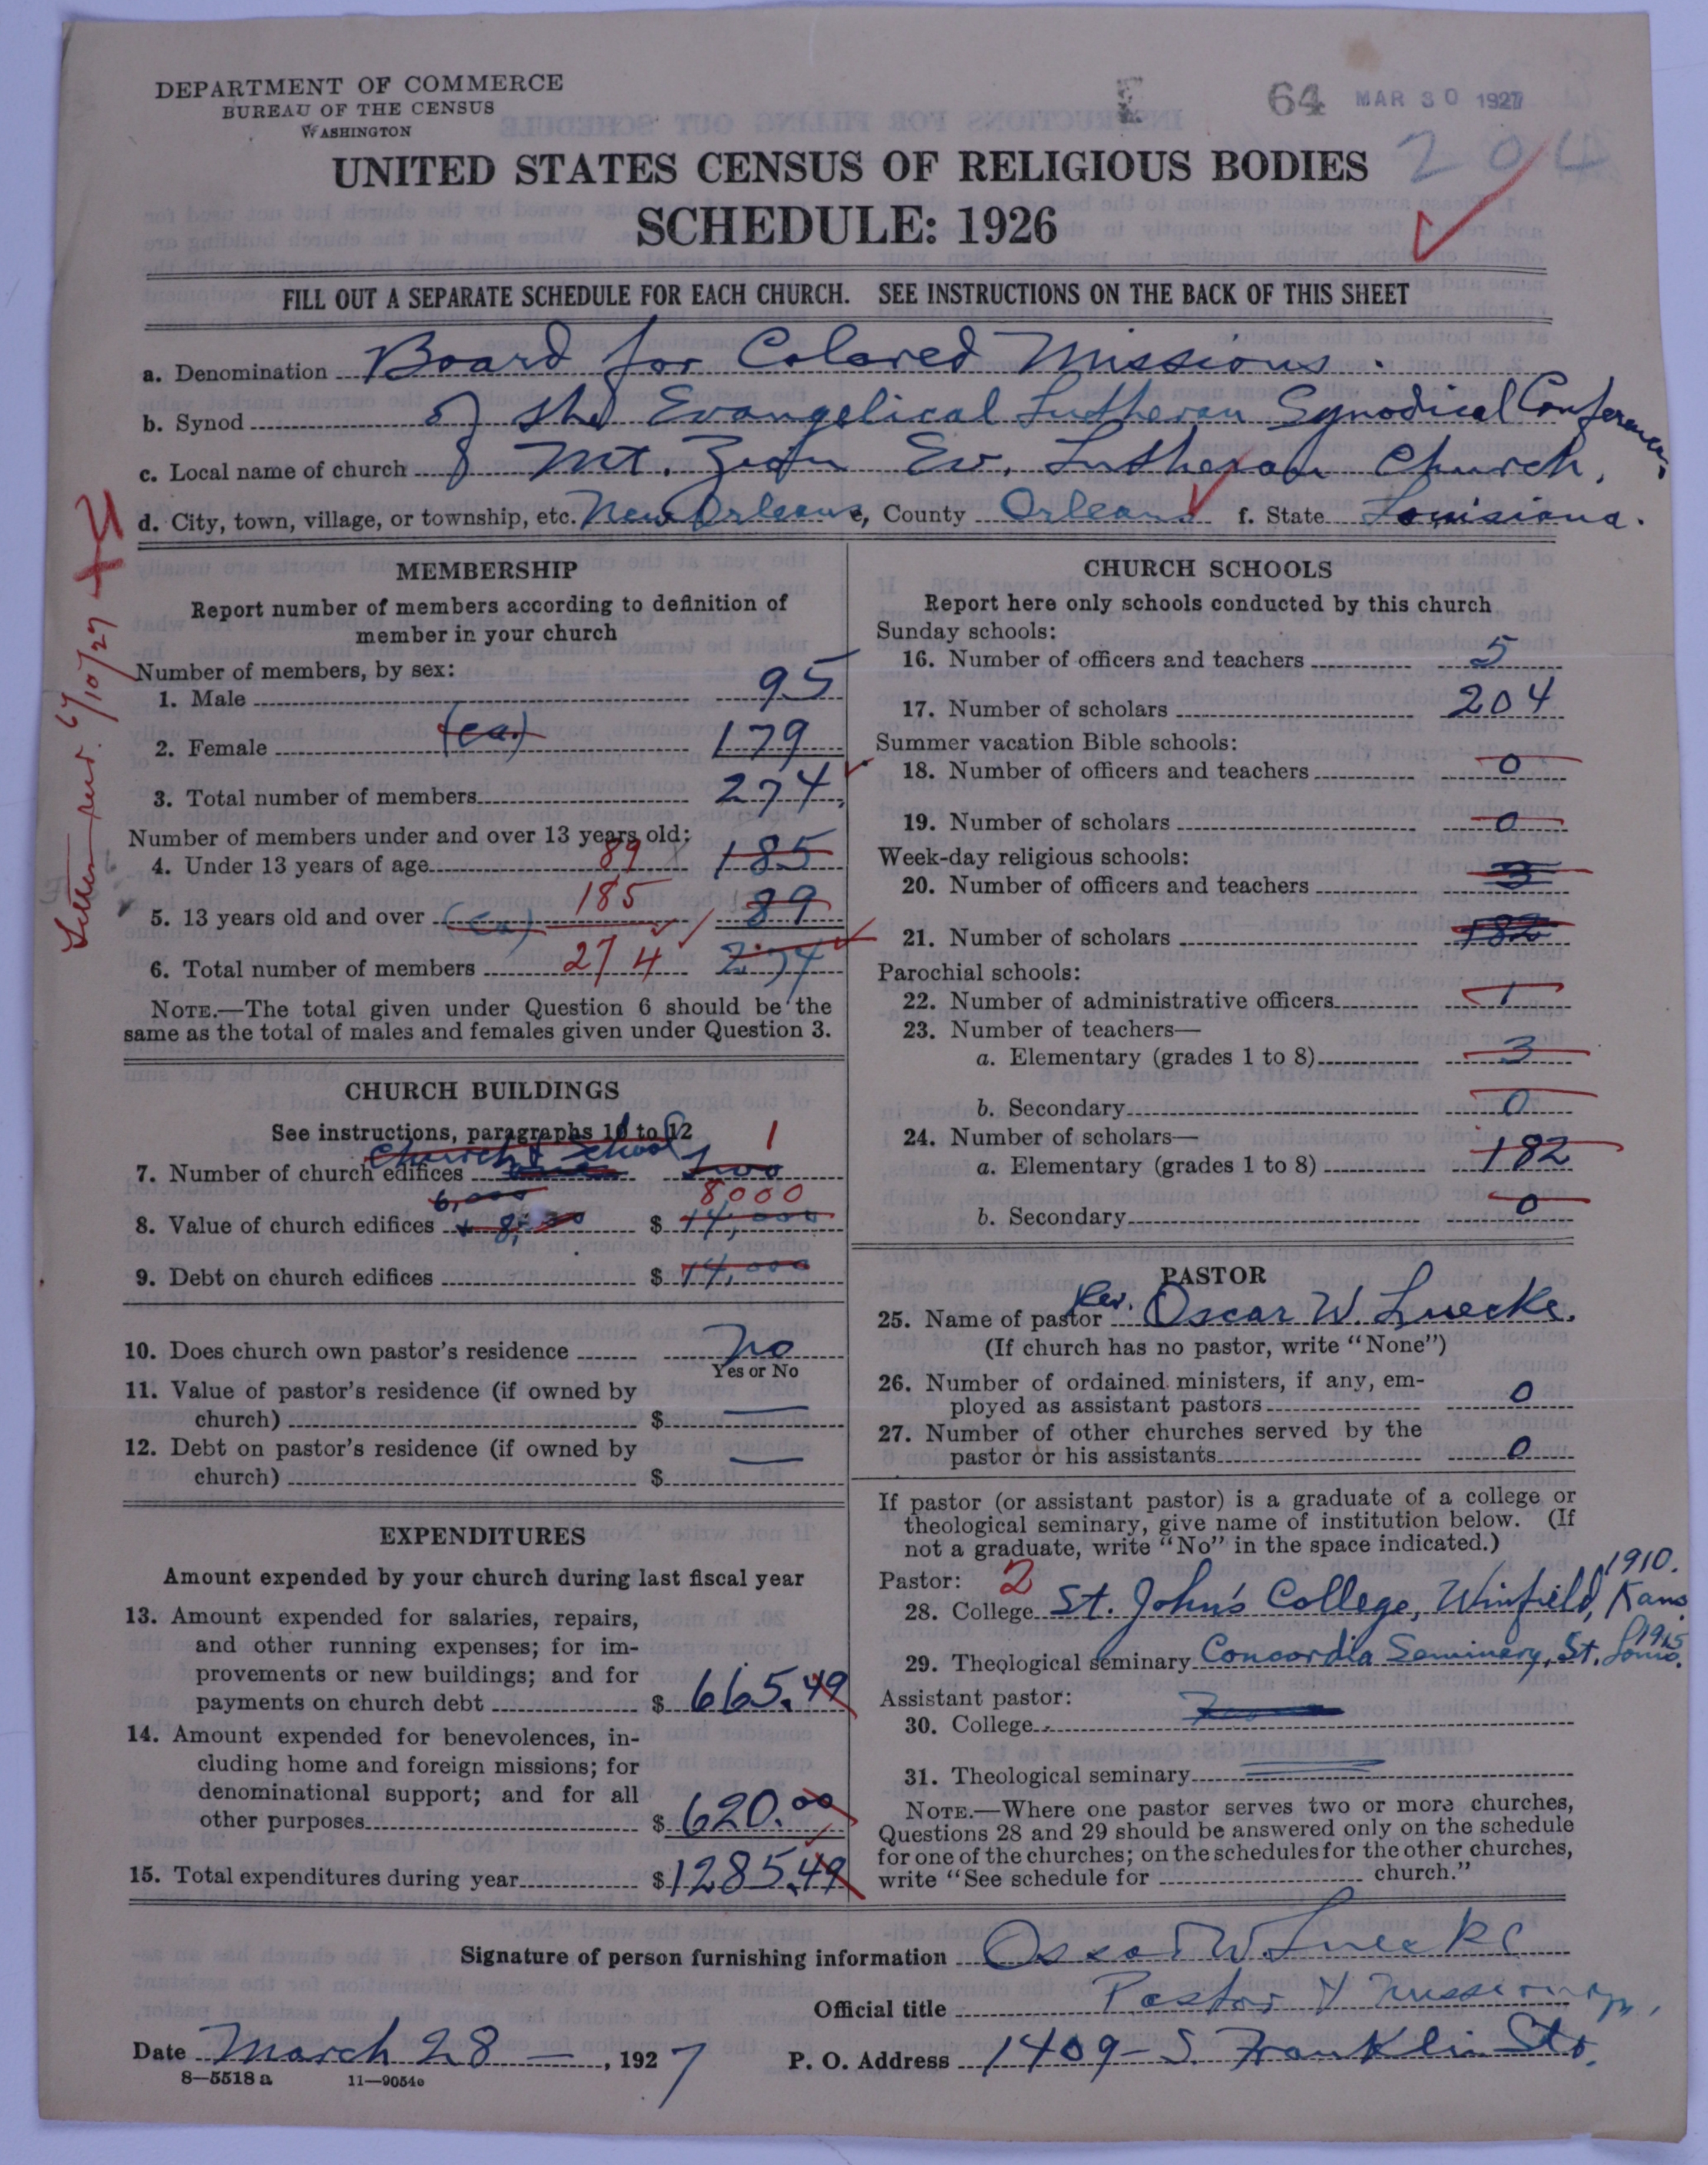 DEPARTMENT OF COMMERCE
BUREAU OF THE CENSUS
WASHINGTON
64 MAR 30 1927
204
UNITED STATES CENSUS OF RELIGIOUS BODIES
SCHEDULE: 1926
FILL OUT A SEPARATE SCHEDULE FOR EACH CHURCH. SEE INSTRUCTIONS ON THE BACK OF THIS SHEET
a. Denomination Board for Colored Missions.
b. Synod of the Evangelical Lutheran Synodical Conference.
c. Local name of church Mt. Zion Ev. Lutheran Church.
d. City, town, village, or township, etc. New Orleans e, County Orleans f. State Louisiana.
6/10/27
MEMBERSHIP
Report number of members according to definition of
member in your church
Number of members, by sex:
1. Male 95
2. Female (ca.) 179
3. Total number of members 274
Number of members under and over 13 years old:
4. Under 13 years of age 89 185
5. 13 years old and over (ca) 185 89
6. Total number of members 274 274
NOTE.—The total given under Question 6 should be the
same as the total of males and females given under Question 3.
CHURCH BUILDINGS
See instructions, paragraphs 10 to 12
Church & School 1
7. Number of church edifices two
6,000 8000
8. Value of church edifices $ 14,000
9. Debt on church edifices $ 14,000
10. Does church own pastor's residence No
Yes or No
11. Value of pastor's residence (if owned by
church) $ —
12. Debt on pastor's residence (if owned by
church) $ —
EXPENDITURES
Amount expended by your church during last fiscal year
13. Amount expended for salaries, repairs,
and other running expenses; for im-
provements or new buildings; and for
payments on church debt $ 665.49
14. Amount expended for benevolences, in-
cluding home and foreign missions; for
denominational support; and for all
other purposes $ 620.00
15. Total expenditures during year $ 1285.49
CHURCH SCHOOLS
Report here only schools conducted by this church
Sunday schools:
16. Number of officers and teachers 5
17. Number of scholars 204
Summer vacation Bible schools:
18. Number of officers and teachers 0
19. Number of scholars 0
Week-day religious schools:
20. Number of officers and teachers 3
21. Number of scholars 182
Parochial schools:
22. Number of administrative officers 1
23. Number of teachers—
a. Elementary (grades 1 to 8) 3
b. Secondary 0
24. Number of scholars—
a. Elementary (grades 1 to 8) 182
b. Secondary 0
PASTOR
25. Name of pastor Rev. Oscar W. Luecke.
(If church has no pastor, write "None")
26. Number of ordained ministers, if any, em-
ployed as assistant pastors 0
27. Number of other churches served by the
pastor or his assistants 0
If pastor (or assistant pastor) is a graduate of a college or
theological seminary, give name of institution below. (If
not a graduate, write "No" in the space indicated.)
Pastor: 2 1910.
28. College St. John's College, Winfield, Kans.
29. Theological seminary Concordia Seminary, St. Louis. 1915
Assistant pastor:
30. College
31. Theological seminary
NOTE.—Where one pastor serves two or more churches,
Questions 28 and 29 should be answered only on the schedule
for one of the churches; on the schedules for the other churches,
write "See schedule for church."
Signature of person furnishing information Oscar W Luecke
Official title Pastor & Missionary,
Date March 28 —, 1927 P. O. Address 1409 - S. Franklin Str.
8—5518 a 11—9054c